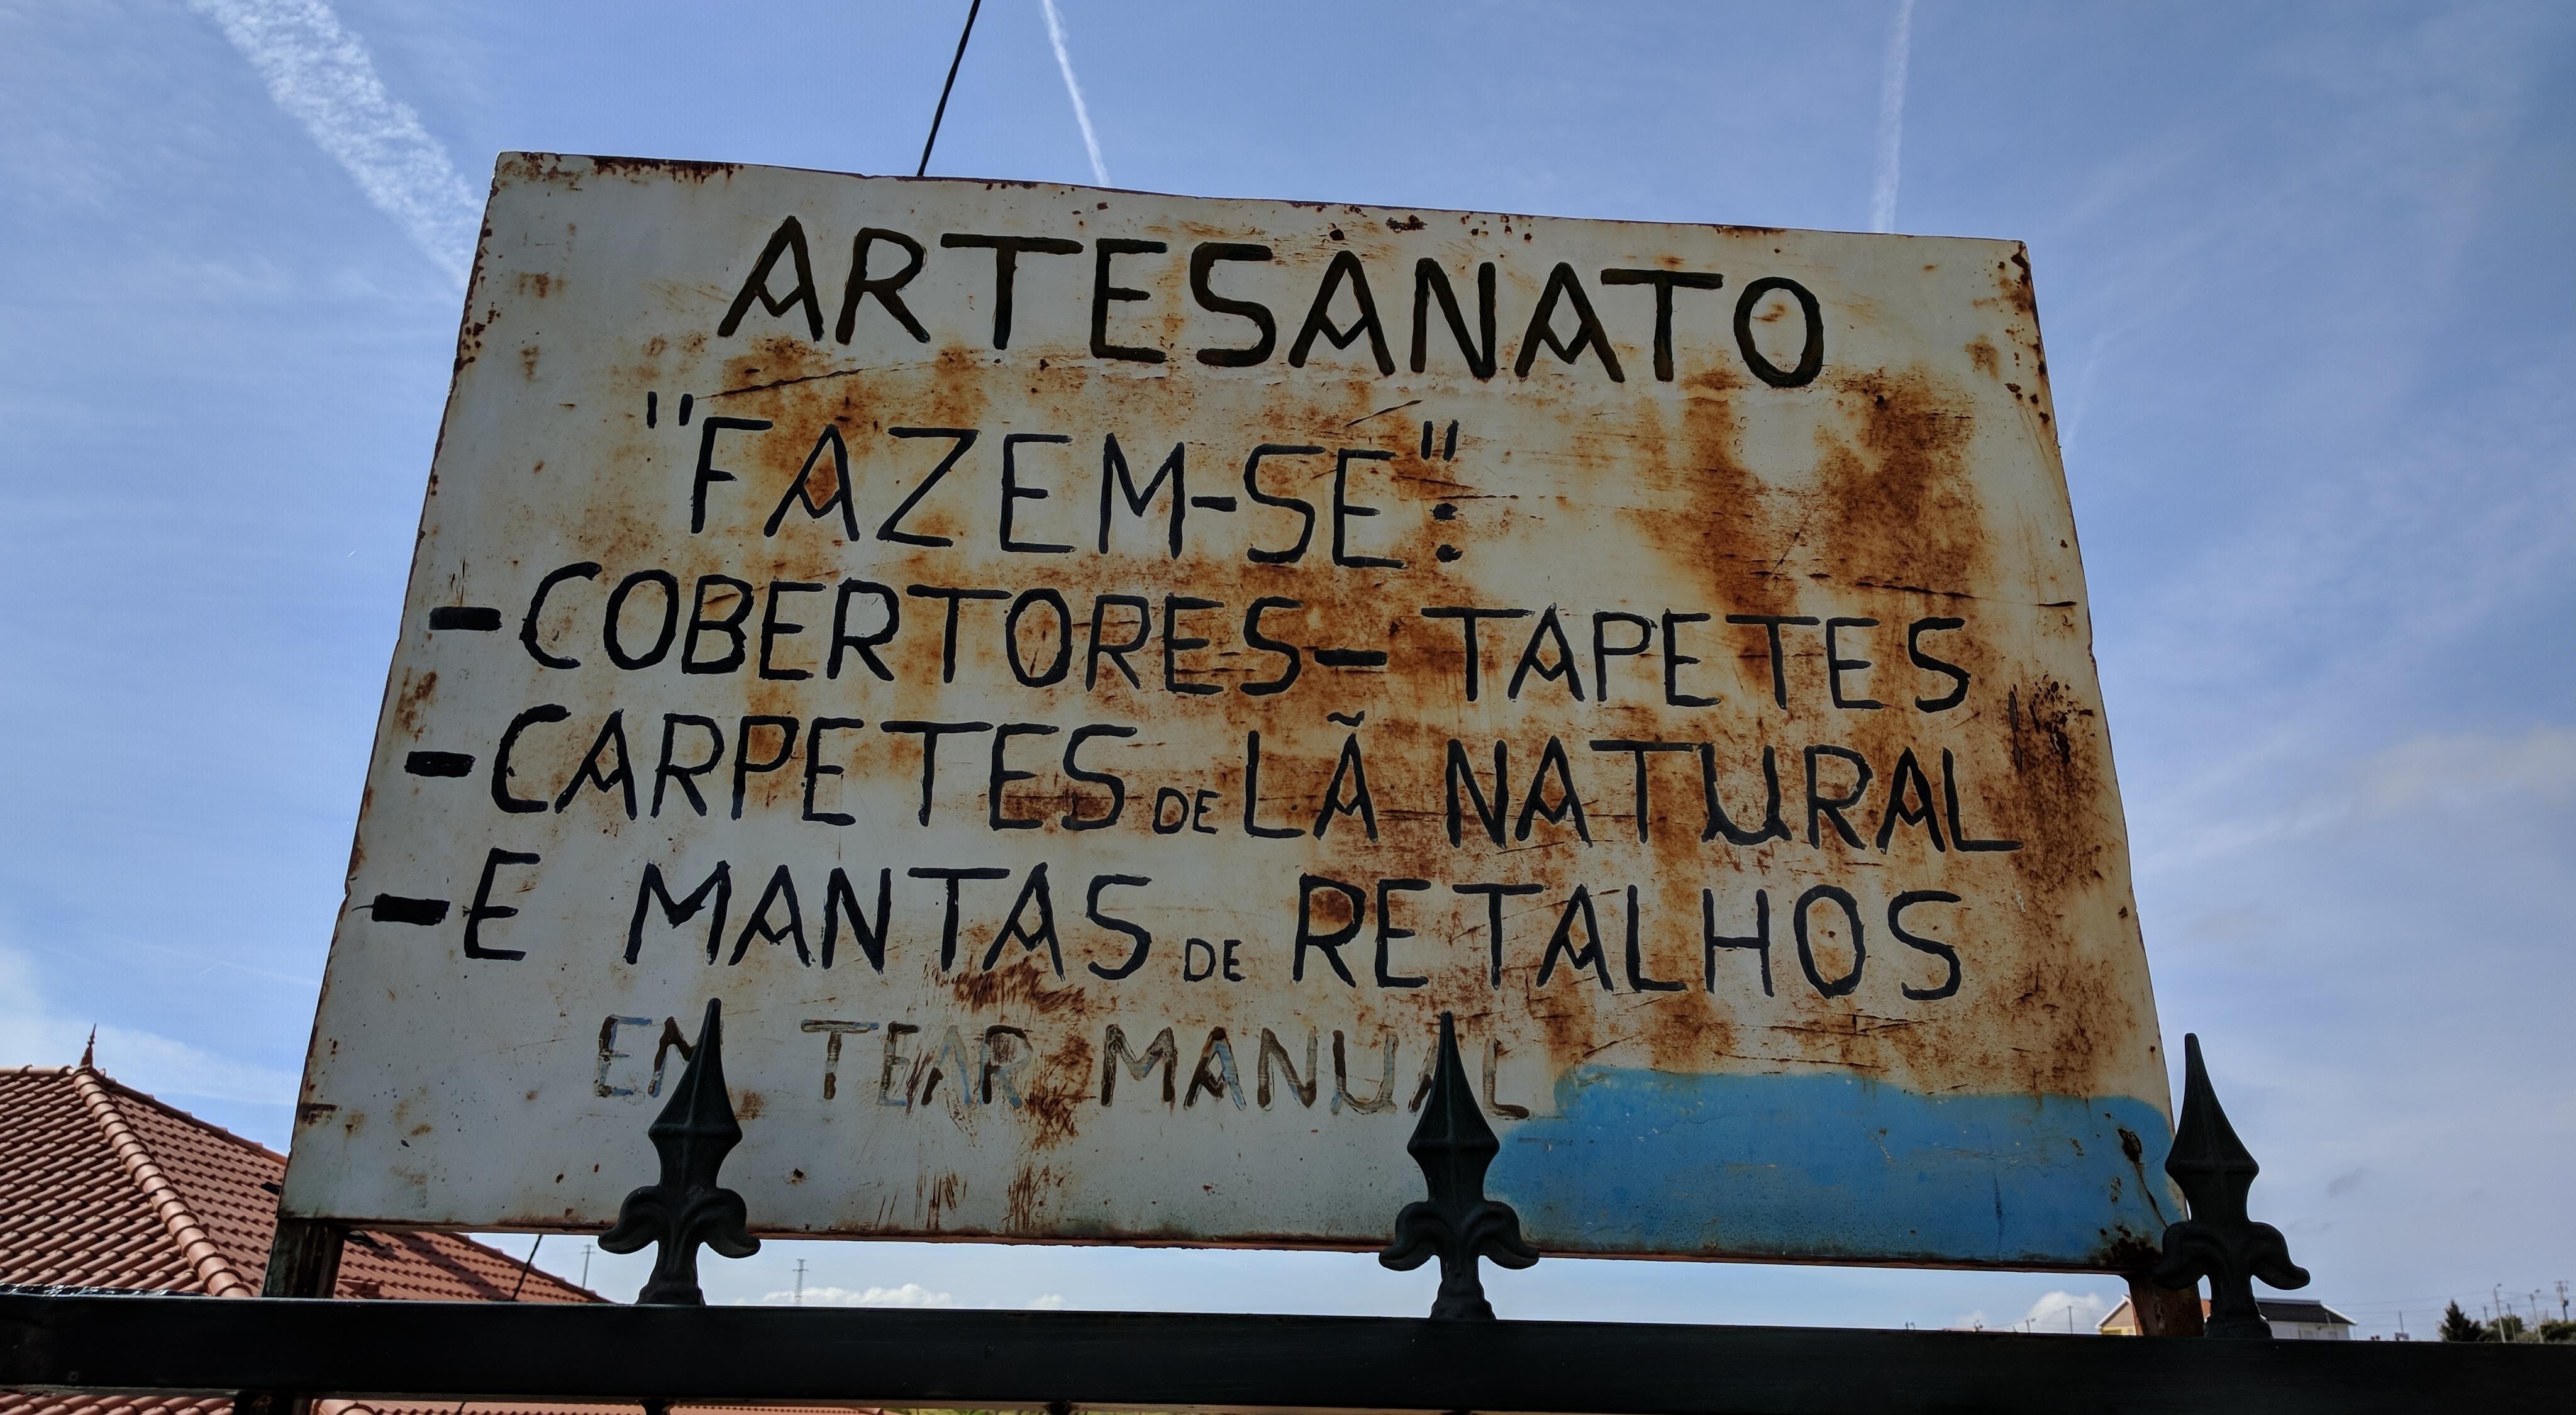 ARTESANATO
"FAZEM-SE":
-COBERTORES-TAPETES
-CARPETES DE LÃ NATURAL
-E MANTAS DE RETALHOS
EM TEAR MANUAL